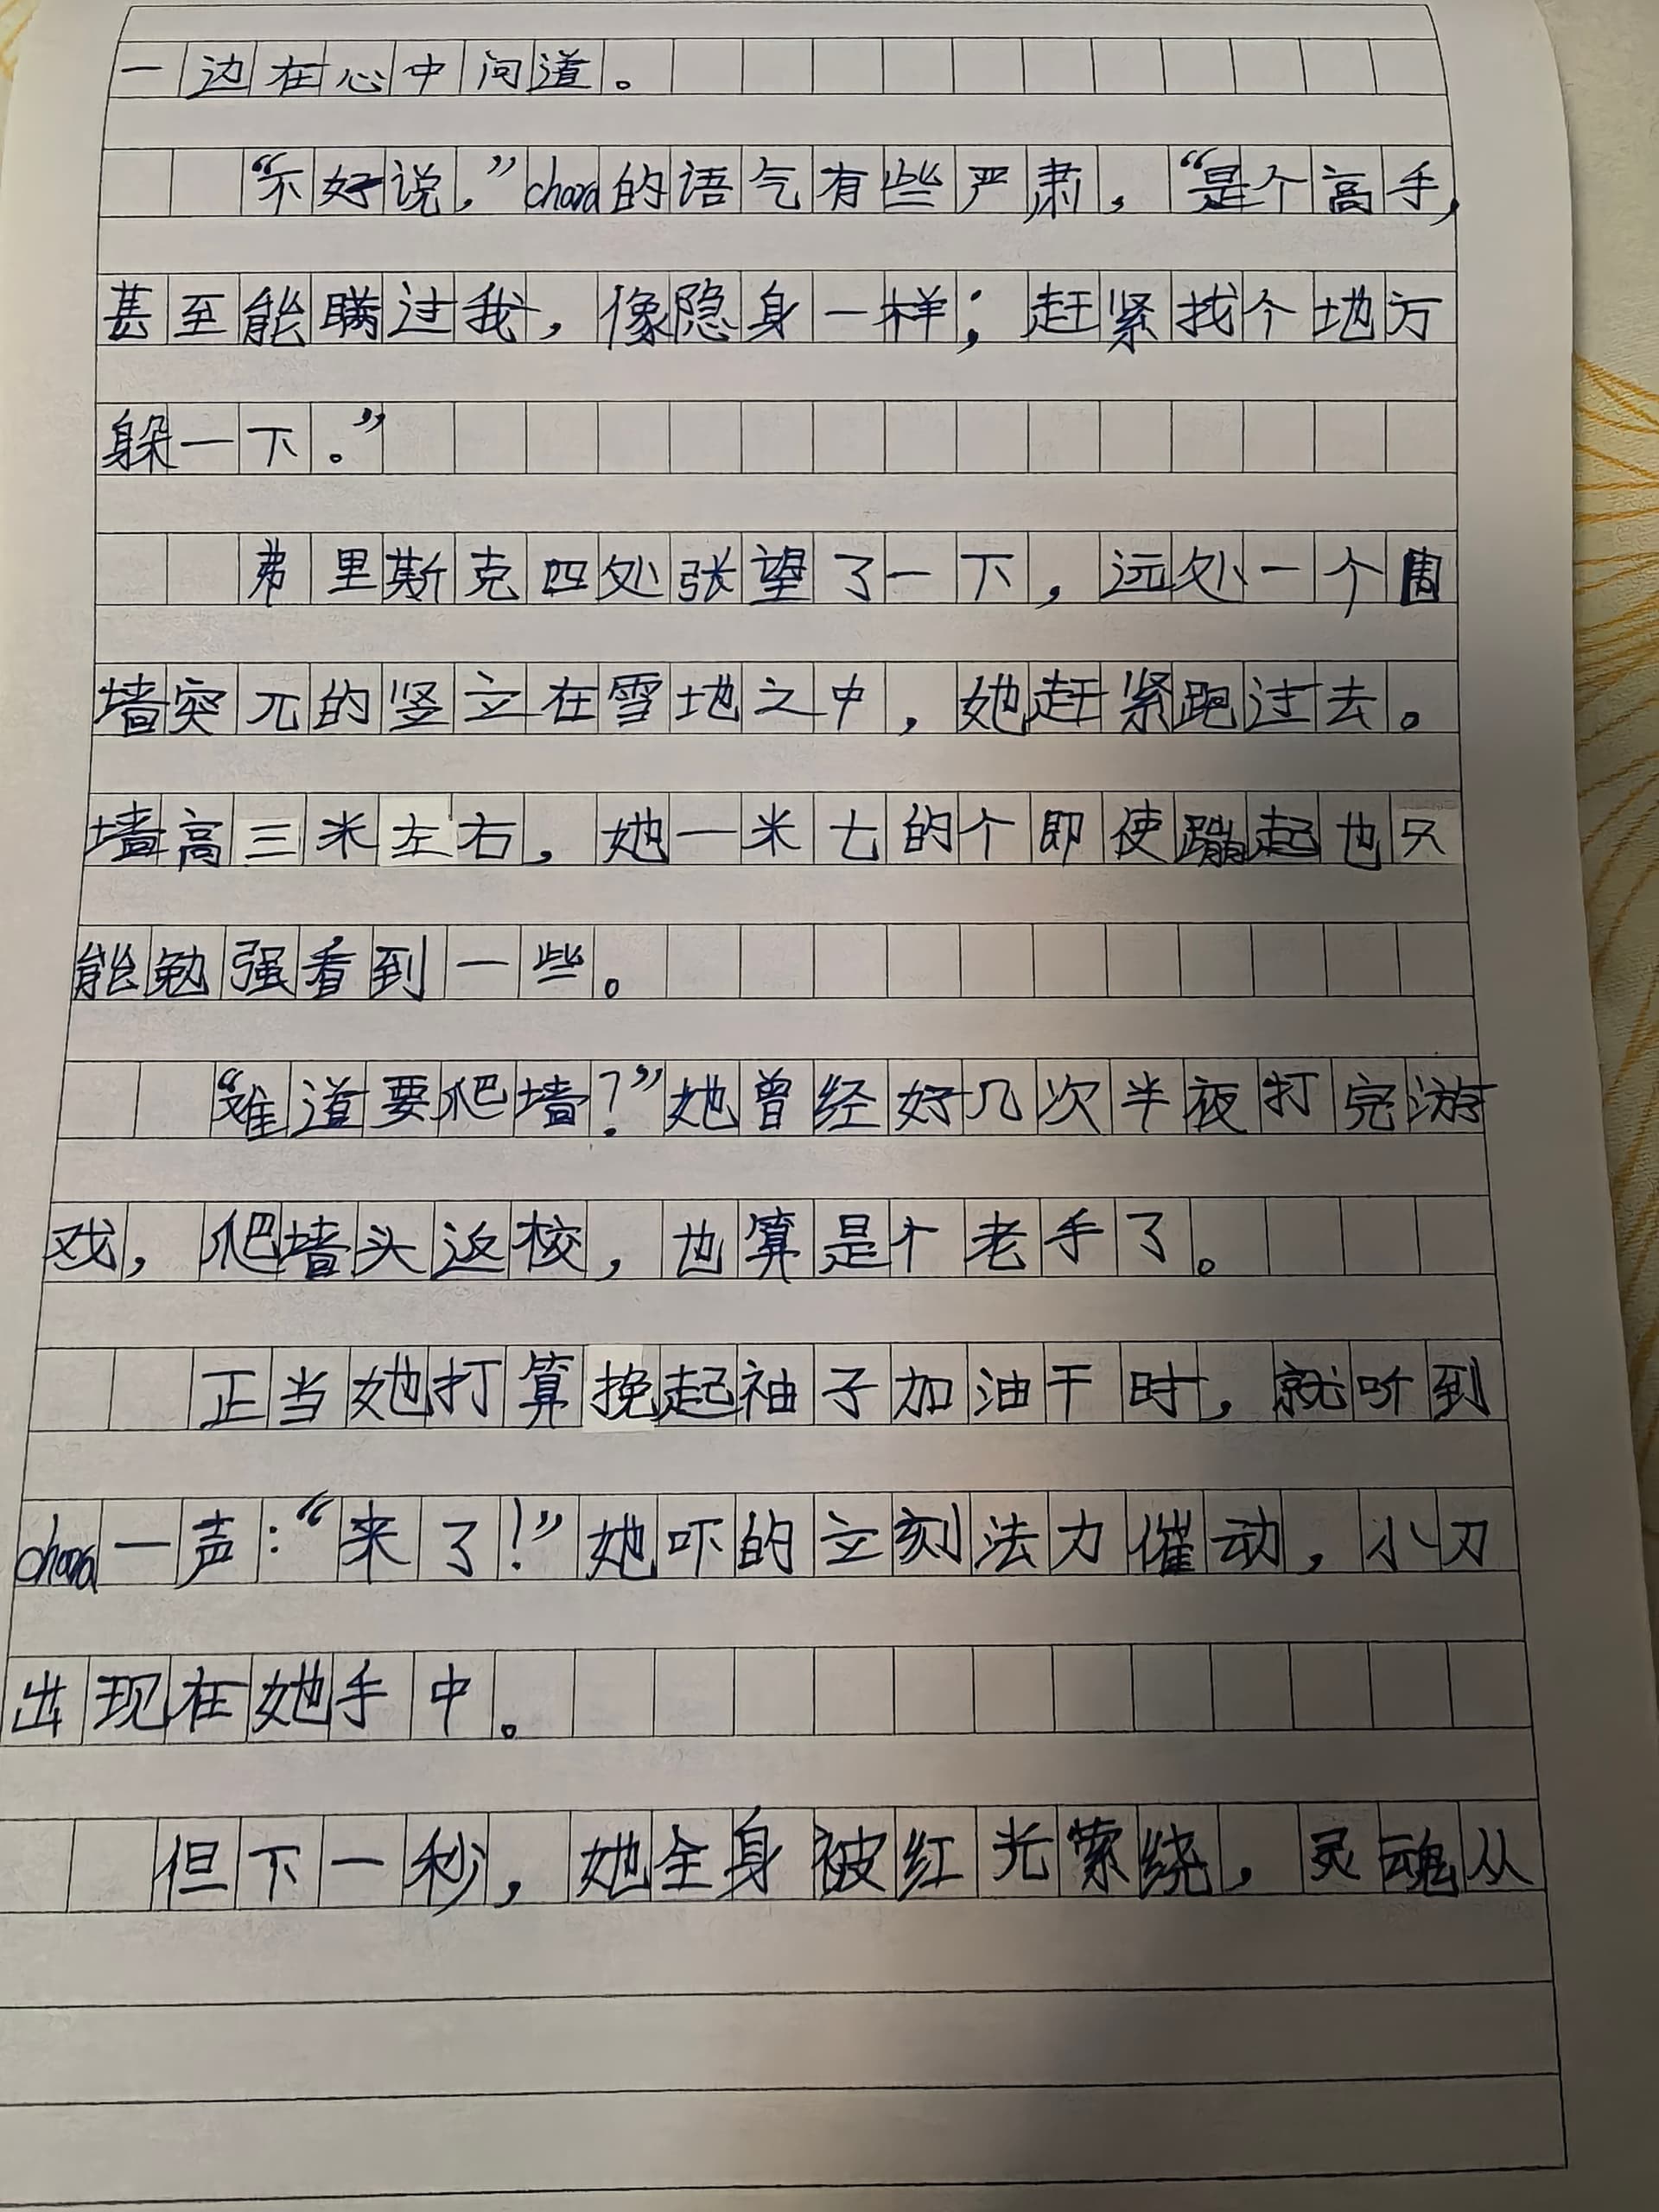 一边在心中问道。
“不好说，”chara的语气有些严肃，“是个高手，
甚至能瞒过我，像隐身一样；赶紧找个地方
躲一下。”
弗里斯克四处张望了一下，远处一个围
墙突兀的竖立在雪地之中，她赶紧跑过去。
墙高三米左右，她一米七的个即使蹦起也只
能勉强看到一些。
“难道要爬墙？”她曾经好几次半夜打完游
戏，爬墙头返校，也算是个老手了。
正当她打算挽起袖子加油干时，就听到
chara一声：“来了！”她吓的立刻法力催动，小刀
出现在她手中。
但下一秒，她全身被红光萦绕，灵魂从